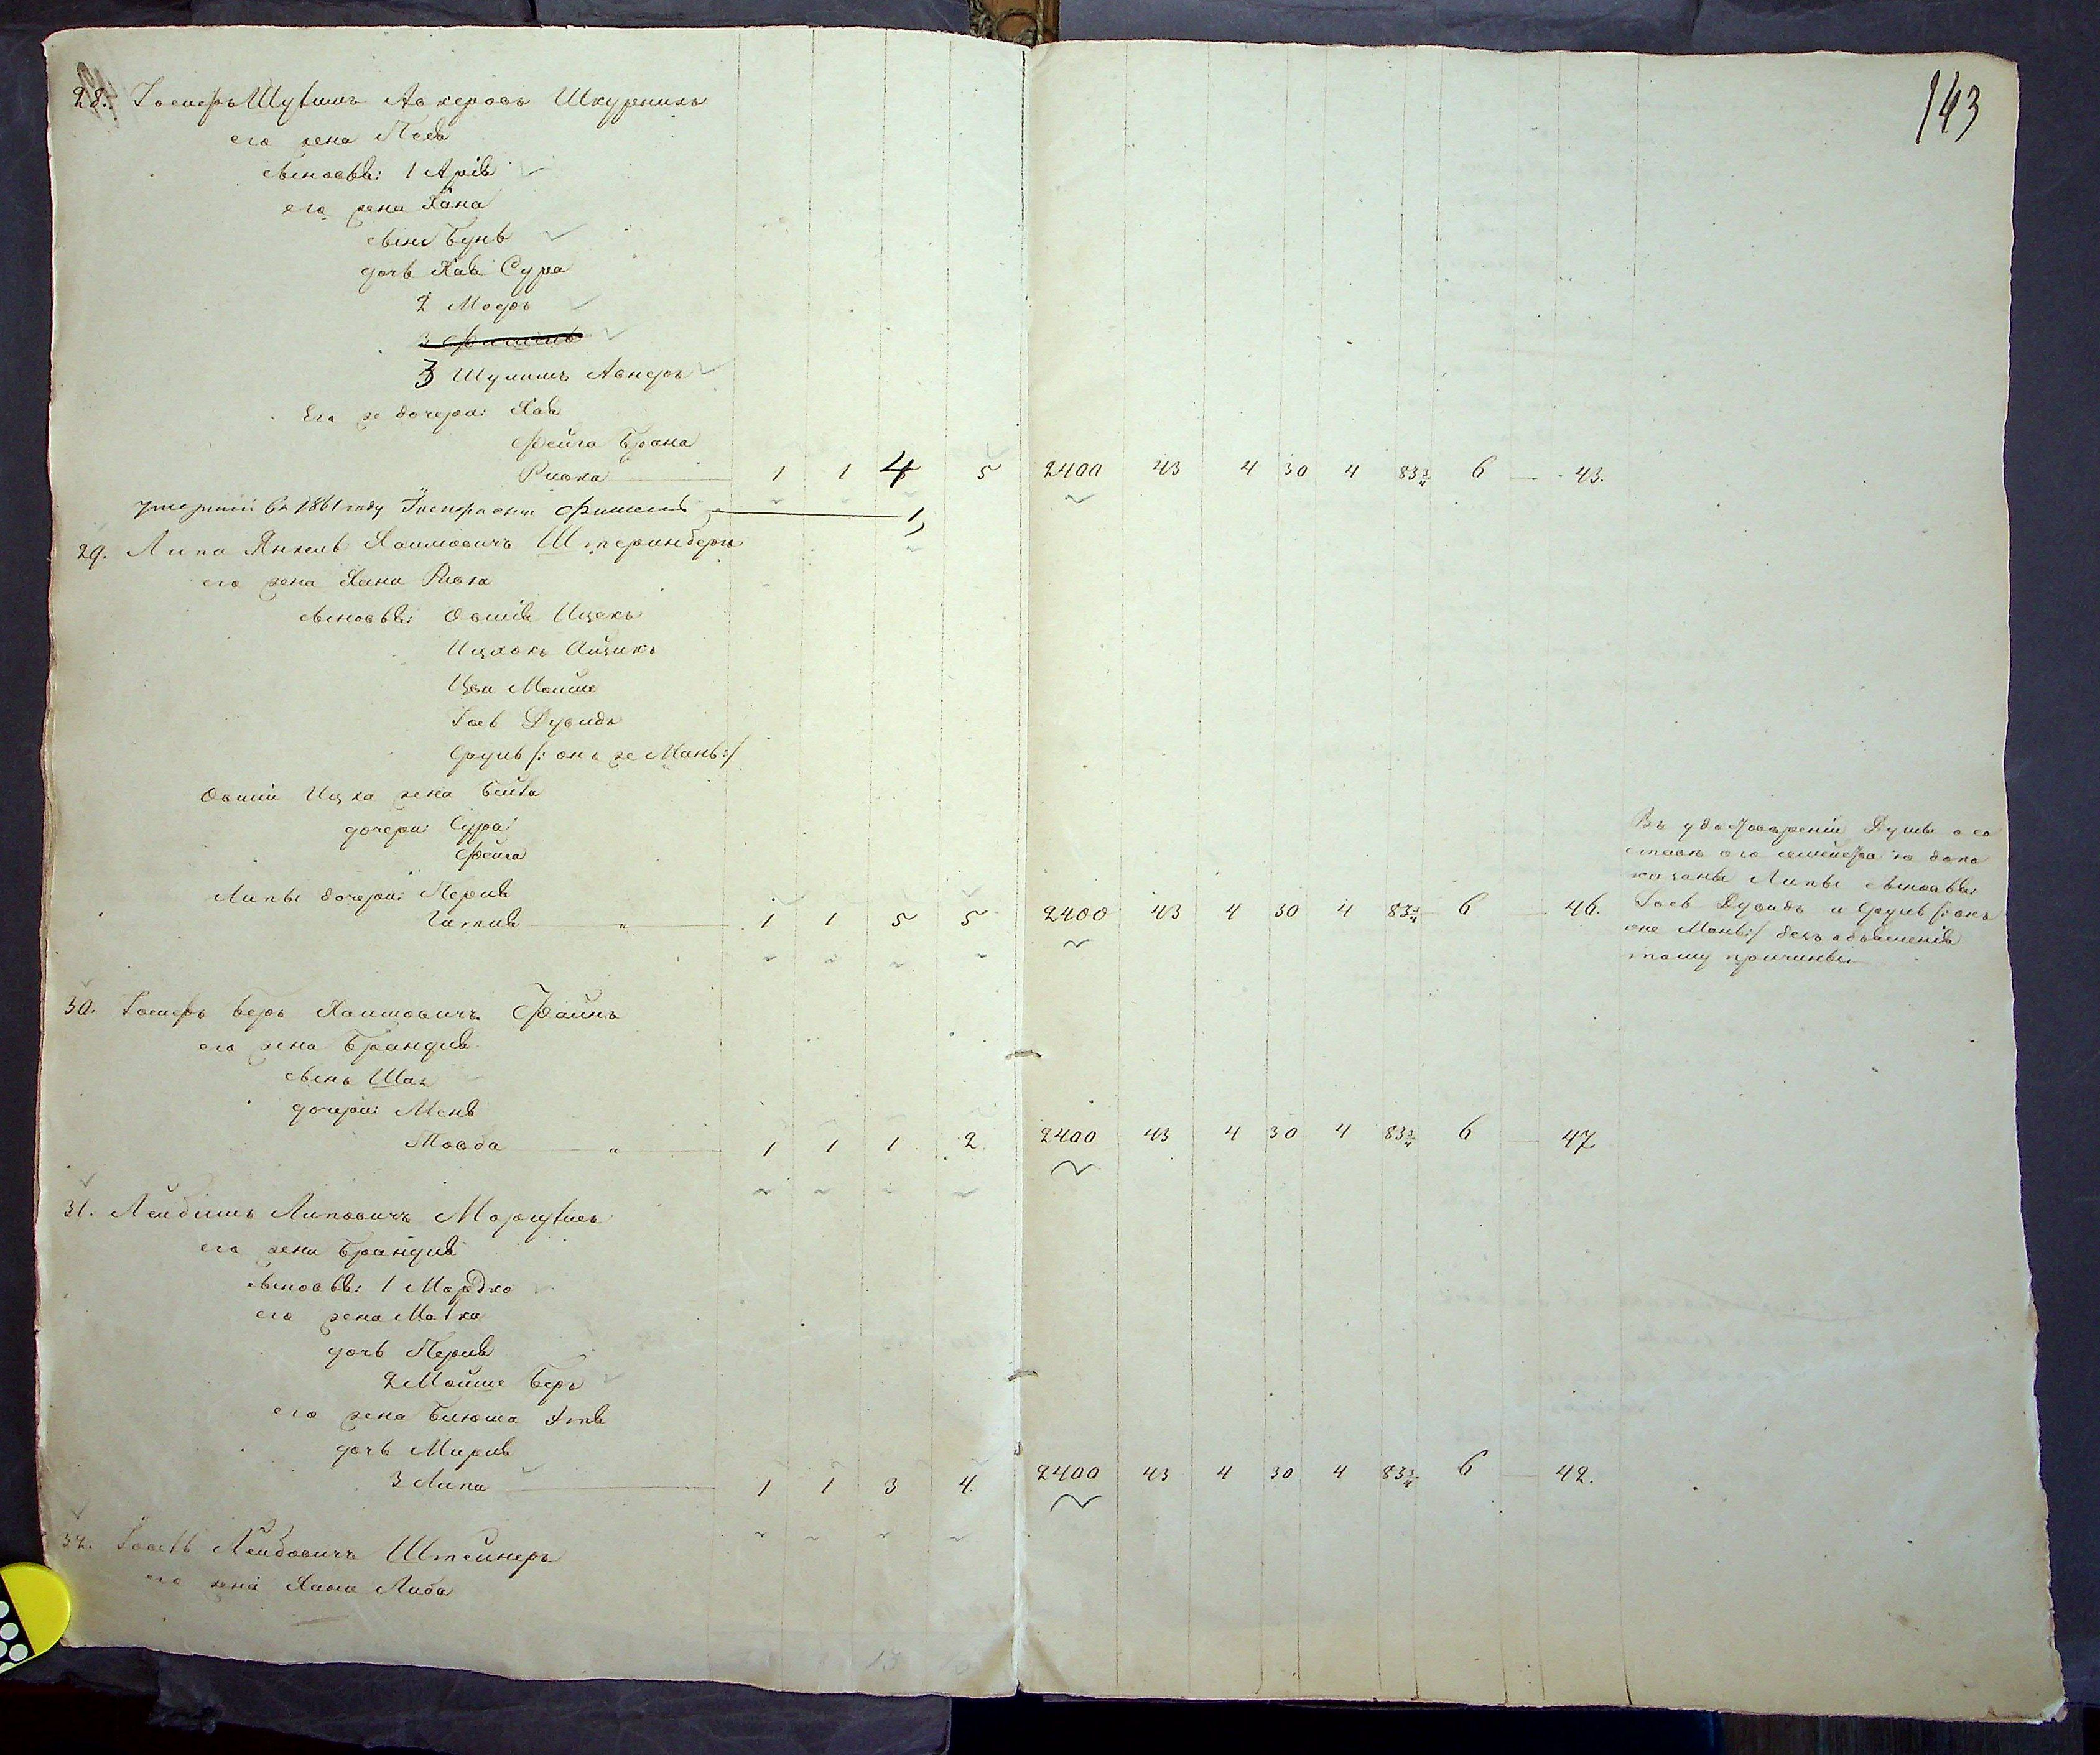 143
28. Іосифъ Шулимъ Авнеровъ Шкурникъ
его жена Песя
сыновья: 1 Арія
его жена Хана
сынъ Бунь
дочь Хая Сура
2 Мофъ
3 Фишель
3 Шулимъ Авнеръ
Его же дочери: Хая
Фейга Брана
Ривка 1 1 4 5 2400 43 4 30 4 83¾ 6 — 43.
умершій въ 1861 году Фишель — 1,
29. Липа Янкель Хаимовичъ Штеринбергъ
его жена Хана Ривка
сыновья: Овшія Ицекъ
Ицхокъ Айзикъ
Цви Мойше
Іось Дувидъ
Сруль /: онъ же Мань :/
Овшіи Ицка жена Бейла
дочери: Сура
Фейга
Липы дочери: Перля
Гитля — " — 1 1 5 5 2400 43 4 30 4 83¾ 6 — 46.
Въ удостовереніи Думы о со
ставѣ его семейства не пока
казаны Липы сыновья:
Іось Дувидъ и Сруль /: онъ
же Мань :/ безъ объясненія
тому причины
30. Іосифъ Беръ Хаимовичъ Файнъ
его жена Брандля
сынъ Шая
дочери: Меня
Товба — " — 1 1 1 2 2400 43 4 30 4 83¾ 6 — 47.
31. Лейбишъ Липовичъ Маргулисъ
его жена Брандля
сыновья: 1 Мордко
его жена Малка
дочь Перля
2 Мойше Беръ
его жена Блюма
дочь Миреля
3 Липа 1 1 3 4. 2400 43 4 30 4 83¾ 6 — 42.
32. Лейбовичъ Штейнеръ
его жена Хана Либа